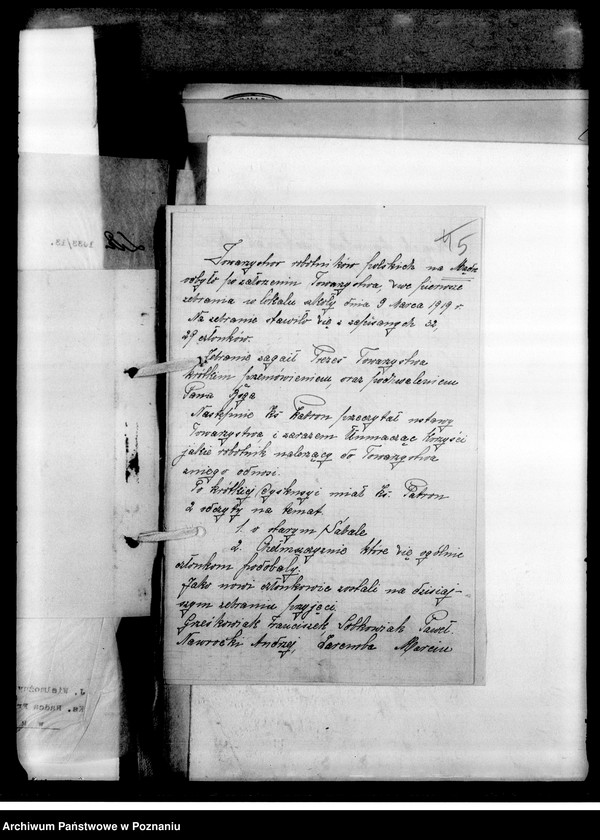 45
Towarzystwo robotników polskich na
odbyło po założeniu Towarzystwa, swe pierwsze
zebranie w lokalu szkoły dnia 9 Marca 1919 r.
Na zebranie stawiło się z zapisanych 32,
29 członków.
Zebranie zagaił Prezes Towarzystwa
krótkim przemówieniem, oraz pochwaleniem
Pana Boga
Następnie Ks Patron przeczytał ustawy
Towarzystwa i zarazem tłumacząc korzyści
jakie robotnik należący do Towarzystwa
z niego odnosi.
Po krótkiej dyskusyi miał Ks. Patron
2 odczyty na temat
1. o starym
2. które się ogólnie
członkom podobały.
Jako nowi członkowie zostali na dzisiej-
szym zebraniu przyjęci
Grześkowiak Franciszek Paweł
Nawrocki Andrzej, Zaremba Marcin
J. Wielmożny
Ks. Radca
Archiwum Państwowe w Poznaniu